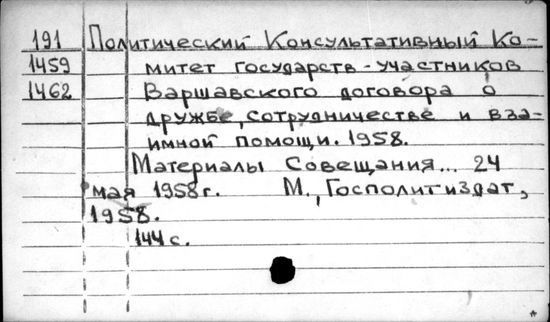 191 Политический Консультативный Ко-
1459 митет государств-участников
1462 Варшавского договора о
дружбе, сотрудничестве и вза-
имной помощи. 1958.
Материалы Совещания... 24
мая 1958г. М., Госполитиздат,
1958.
144 с.
*